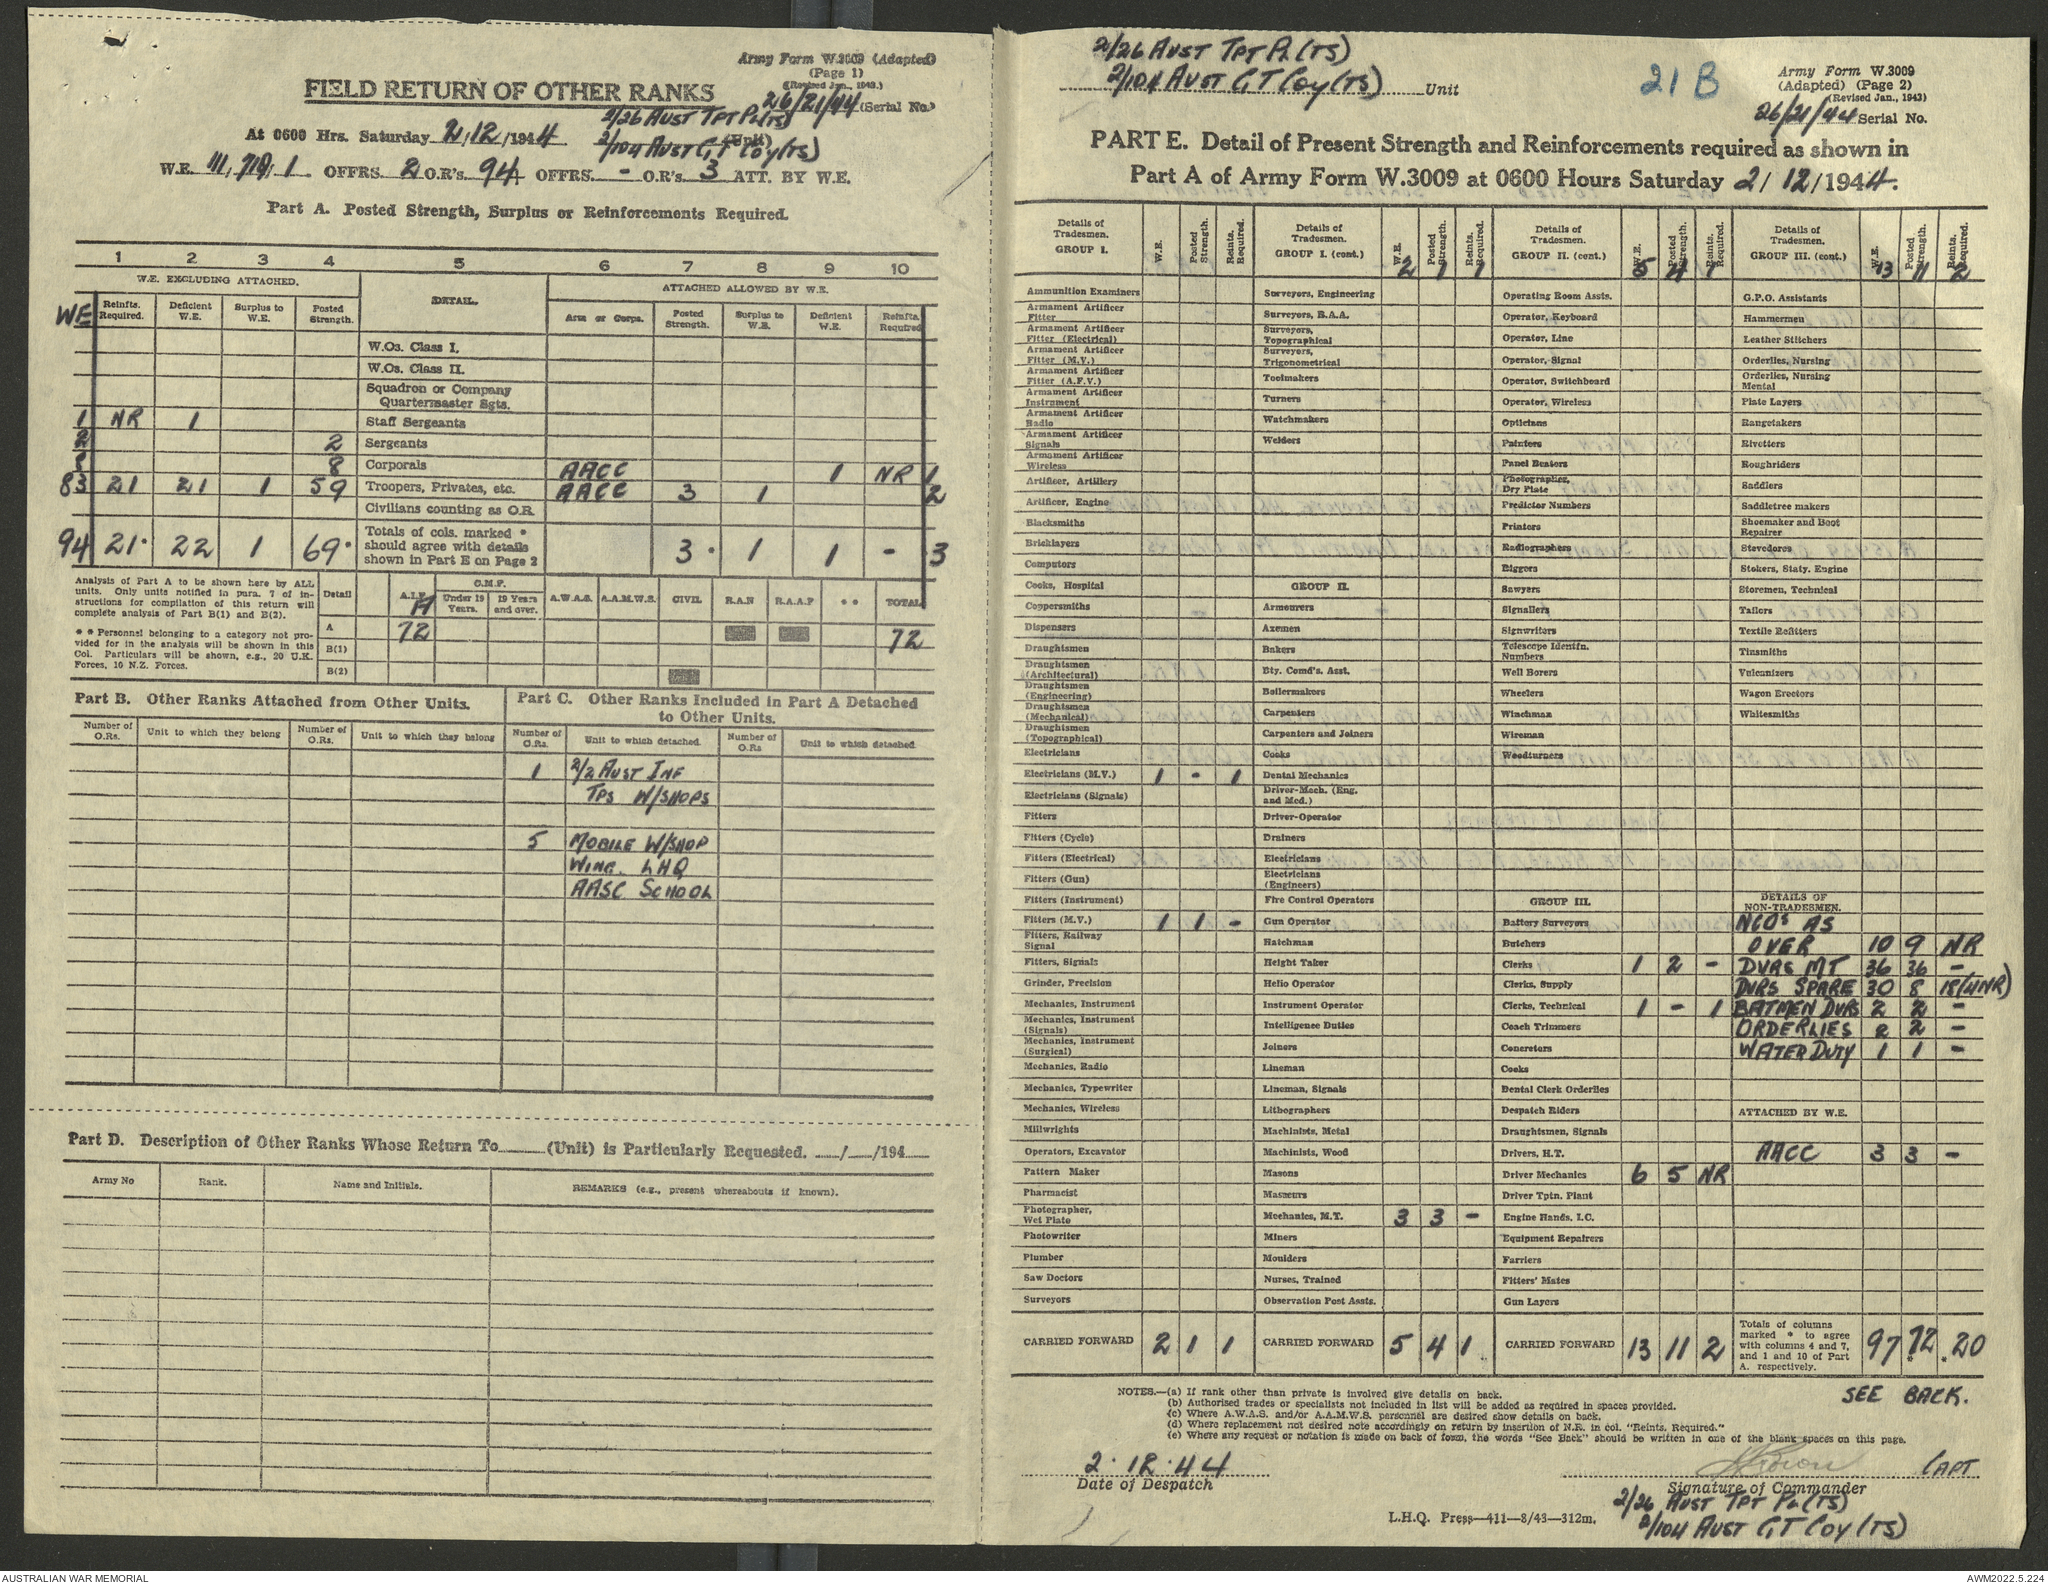 Army Form W.3009 (Adapted)
(Page 1)
(Revised Jan., 1943.)
FIELD RETURN OF OTHER RANKS
26/21/44 (Serial No.)
2/26 AUST TPT PL (TS)
At 0600 Hrs. Saturday 2/12/1944 (Unit)
2/104 AUST GT COY (TS)
W.E. III/719/1 OFFRS. 2 O.R's. 94 OFFRS - O.R's. 3 ATT. BY W.E.
Part A. Posted Strength, Surplus or Reinforcements Required.
1 2 3 4 5 6 7 8 9 10
W.E. EXCLUDING ATTACHED. DETAIL. ATTACHED ALLOWED BY W.E.
WE Reinfts. Required. Deficient W.E. Surplus to W.E. Posted Strength. Arm or Corps. Posted Strength. Surplus to W.E. Deficient W.E. Reinfts. Required
W.Os. Class I.
W.Os. Class II.
Squadron or Company Quartermaster Sgts.
1 NR 1 Staff Sergeants
2 2 Sergeants
8 8 Corporals AACC 1 NR 1
83 21 21 1 59 Troopers, Privates, etc. AACC 3 1 2
Civilians counting as O.R.
94 21* 22 1 69* Totals of cols. marked * should agree with details shown in Part E on Page 2 3* 1 1 - 3
Analysis of Part A to be shown here by ALL units. Only units notified in para. 7 of instructions for compilation of this return will complete analysis of Part B(1) and B(2).
* * Personnel belonging to a category not provided for in the analysis will be shown in this Col. Particulars will be shown, e.g., 20 U.K. Forces, 10 N.Z. Forces.
Detail A.I.F. C.M.F. Under 19 Years. 19 Years and over. A.W.A.S. A.A.M.W.S. CIVIL R.A.N R.A.A.F * * TOTAL
A 72 72
B(1)
B(2)
Part B. Other Ranks Attached from Other Units.
Number of O.Rs. Unit to which they belong Number of O.Rs. Unit to which they belong
Part C. Other Ranks Included in Part A Detached to Other Units.
Number of O.Rs. Unit to which detached. Number of O.Rs Unit to which detached.
1 2/2 AUST INF
TPS W/SHOPS
5 MOBILE W/SHOP
WING. LHQ
AASC SCHOOL
Part D. Description of Other Ranks Whose Return To (Unit) is Particularly Requested. / /194
Army No Rank. Name and Initials. REMARKS (e.g., present whereabouts if known).
2/26 AUST TPT PL (TS)
2/104 AUST GT COY (TS) Unit
21 B
Army Form W.3009
(Adapted) (Page 2)
(Revised Jan., 1943)
26/21/44 Serial No.
PART E. Detail of Present Strength and Reinforcements required as shown in
Part A of Army Form W.3009 at 0600 Hours Saturday 2/12/1944.
Details of Tradesmen. GROUP I. W.E. Posted Strength. Reints. Required.
Ammunition Examiners
Armament Artificer Fitter
Armament Artificer Fitter (Electrical)
Armament Artificer Fitter (M.V.)
Armament Artificer Fitter (A.F.V.)
Armament Artificer Instrument
Armament Artificer Radio
Armament Artificer Signals
Armament Artificer Wireless
Artificer, Artillery
Artificer, Engine
Blacksmiths
Bricklayers
Computors
Cooks, Hospital
Coppersmiths
Dispensers
Draughtsmen
Draughtsmen (Architectural)
Draughtsmen (Engineering)
Draughtsmen (Mechanical)
Draughtsmen (Topographical)
Electricians
Electricians (M.V.) 1 - 1
Electricians (Signals)
Fitters
Fitters (Cycle)
Fitters (Electrical)
Fitters (Gun)
Fitters (Instrument)
Fitters (M.V.) 1 1 -
Fitters, Railway Signal
Fitters, Signals
Grinder, Precision
Mechanics, Instrument
Mechanics, Instrument (Signals)
Mechanics, Instrument (Surgical)
Mechanics, Radio
Mechanics, Typewriter
Mechanics, Wireless
Millwrights
Operators, Excavator
Pattern Maker
Pharmacist
Photographer, Wet Plate
Photowriter
Plumber
Saw Doctors
Surveyors
CARRIED FORWARD 2 1 1
Details of Tradesmen. GROUP I. (cont.) W.E. Posted Strength. Reints. Required.
2 1 1
Surveyors, Engineering
Surveyors, R.A.A.
Surveyors, Topographical
Surveyors, Trigonometrical
Toolmakers
Turners
Watchmakers
Welders
GROUP II.
Armourers
Axemen
Bakers
Bty. Comd's. Asst.
Boilermakers
Carpenters
Carpenters and Joiners
Cooks
Dental Mechanics
Driver-Mech. (Eng. and Med.)
Driver-Operator
Drainers
Electricians
Electricians (Engineers)
Fire Control Operators
Gun Operator
Hatchman
Height Taker
Helio Operator
Instrument Operator
Intelligence Duties
Joiners
Lineman
Lineman, Signals
Lithographers
Machinists, Metal
Machinists, Wood
Masons
Masseurs
Mechanics, M.T. 3 3 -
Miners
Moulders
Nurses, Trained
Observation Post Assts.
CARRIED FORWARD 5 4 1
Details of Tradesmen. GROUP II. (cont.) W.E. Posted Strength. Reints. Required.
5 4 1
Operating Room Assts.
Operator, Keyboard
Operator, Line
Operator, Signal
Operator, Switchboard
Operator, Wireless
Opticians
Painters
Panel Beaters
Photographer, Dry Plate
Predictor Numbers
Printers
Radiographers
Riggers
Sawyers
Signallers
Signwriters
Telescope Identfn. Numbers
Well Borers
Wheelers
Winchman
Wireman
Woodturners
GROUP III.
Battery Surveyors
Butchers
Clerks 1 2 -
Clerks, Supply
Clerks, Technical 1 - 1
Coach Trimmers
Concretors
Cooks
Dental Clerk Orderlies
Despatch Riders
Draughtsmen, Signals
Drivers, H.T.
Driver Mechanics 6 5 NR
Driver Tptn. Plant
Engine Hands, I.C.
Equipment Repairers
Farriers
Fitters' Mates
Gun Layers
CARRIED FORWARD 13 11 2
Details of Tradesmen. GROUP III. (cont.) W.E. Posted Strength. Reints. Required.
13 11 2
G.P.O. Assistants
Hammermen
Leather Stitchers
Orderlies, Nursing
Orderlies, Nursing Mental
Plate Layers
Rangetakers
Rivetters
Roughriders
Saddlers
Saddletree makers
Shoemaker and Boot Repairer
Stevedores
Stokers, Staty. Engine
Storemen, Technical
Tailors
Textile Refitters
Tinsmiths
Vulcanizers
Wagon Erectors
Whitesmiths
DETAILS OF NON-TRADESMEN.
NCOs AS
OVER 10 9 NR
DVRS MT 36 36 -
DVRS SPARE 30 8 18 (4NR)
BATMEN DVRS 2 2 -
ORDERLIES 2 2 -
WATER DUTY 1 1 -
ATTACHED BY W.E.
AACC 3 3 -
Totals of columns marked * to agree with columns 4 and 7, and 1 and 10 of Part A. respectively. 97 72* *20
SEE BACK.
NOTES.—(a) If rank other than private is involved give details on back.
(b) Authorised trades or specialists not included in list will be added as required in spaces provided.
(c) Where A.W.A.S. and/or A.A.M.W.S. personnel are desired show details on back.
(d) Where replacement not desired note accordingly on return by insertion of N.R. in col. "Reints. Required."
(e) Where any request or notation is made on back of form, the words "See Back" should be written in one of the blank spaces on this page.
2.12.44
Date of Despatch
CAPT
Signature of Commander
2/26 AUST TPT PL (TS)
2/104 AUST GT COY (TS)
L.H.Q. Press—411—8/43—312m.
AUSTRALIAN WAR MEMORIAL
AWM2022.5.224